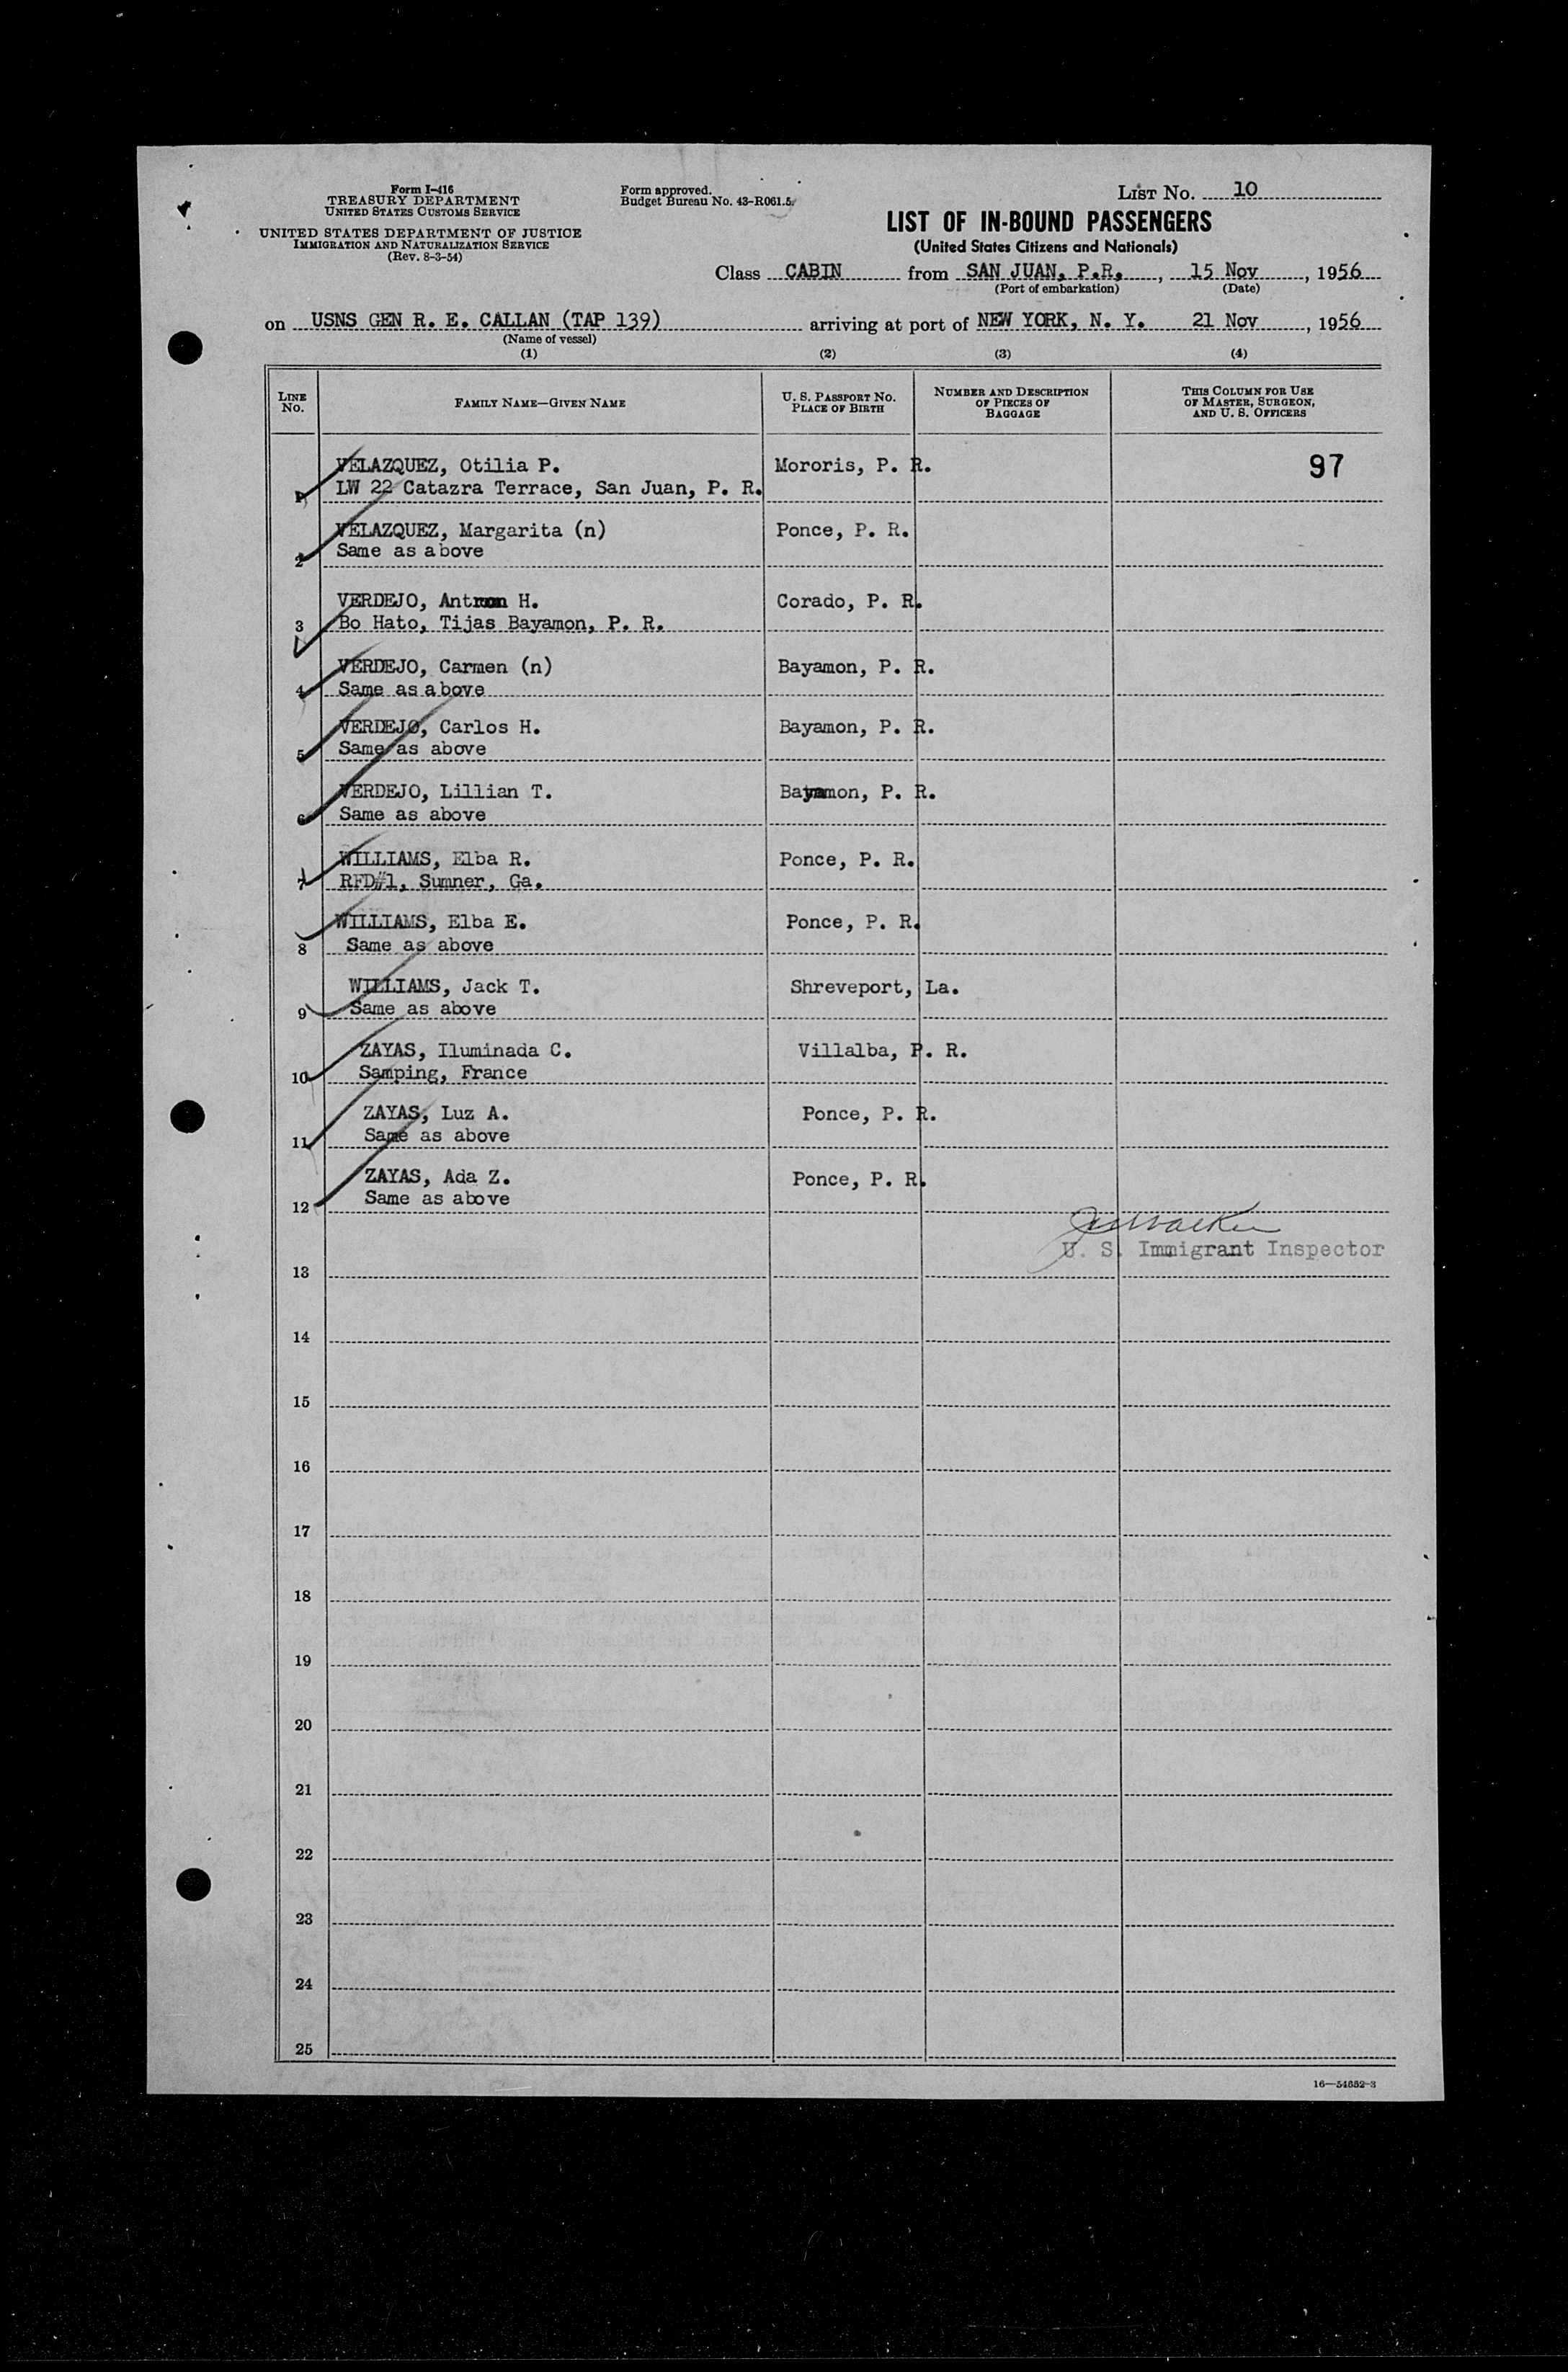 Form I-416
TREASURY DEPARTMENT
UNITED STATES CUSTOMS SERVICE
UNITED STATES DEPARTMENT OF JUSTICE
IMMIGRATION AND NATURALIZATION SERVICE
(Rev. 8-3-54)
Form approved.
Budget Bureau No. 43-R061.5.
LIST No. 10
LIST OF IN-BOUND PASSENGERS
(United States Citizens and Nationals)
Class CABIN from SAN JUAN, P.R., 15 Nov, 1956
(Port of embarkation) (Date)
on USNS GEN R. E. CALLAN (TAP 139) arriving at port of NEW YORK, N. Y. 21 Nov, 1956
(Name of vessel)
(1) (2) (3) (4)
LINE No. FAMILY NAME—GIVEN NAME U. S. PASSPORT No. PLACE OF BIRTH NUMBER AND DESCRIPTION OF PIECES OF BAGGAGE THIS COLUMN FOR USE OF MASTER, SURGEON, AND U. S. OFFICERS
VELAZQUEZ, Otilia P. Mororis, P. R. 97
1 LW 22 Catazra Terrace, San Juan, P. R.
VELAZQUEZ, Margarita (n) Ponce, P. R.
2 Same as above
VERDEJO, H. Corado, P. R.
3 Bo Hato, Tijas Bayamon, P. R.
VERDEJO, Carmen (n) Bayamon, P. R.
4 Same as above
VERDEJO, Carlos H. Bayamon, P. R.
5 Same as above
VERDEJO, Lillian T. Bayamon, P. R.
6 Same as above
WILLIAMS, Elba R. Ponce, P. R.
7 RFD#1, Sumner, Ga.
WILLIAMS, Elba E. Ponce, P. R.
8 Same as above
WILLIAMS, Jack T. Shreveport, La.
9 Same as above
ZAYAS, Iluminada C. Villalba, P. R.
10 Samping, France
ZAYAS, Luz A. Ponce, P. R.
11 Same as above
ZAYAS, Ada Z. Ponce, P. R.
Same as above
12
U. S. Immigrant Inspector
13
14
15
16
17
18
19
20
21
22
23
24
25
16—54652-3